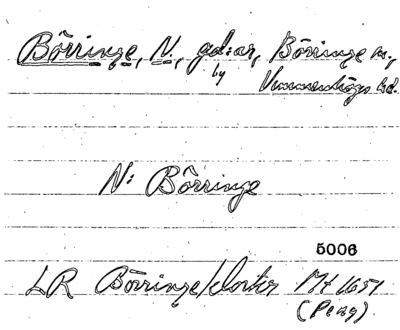 Börringe, N., gd:ar, Börringe sn.,
by Vemmenhögs hd.
N: Börringe
5006
LR Börringekloster Mt 1651
(Peng).